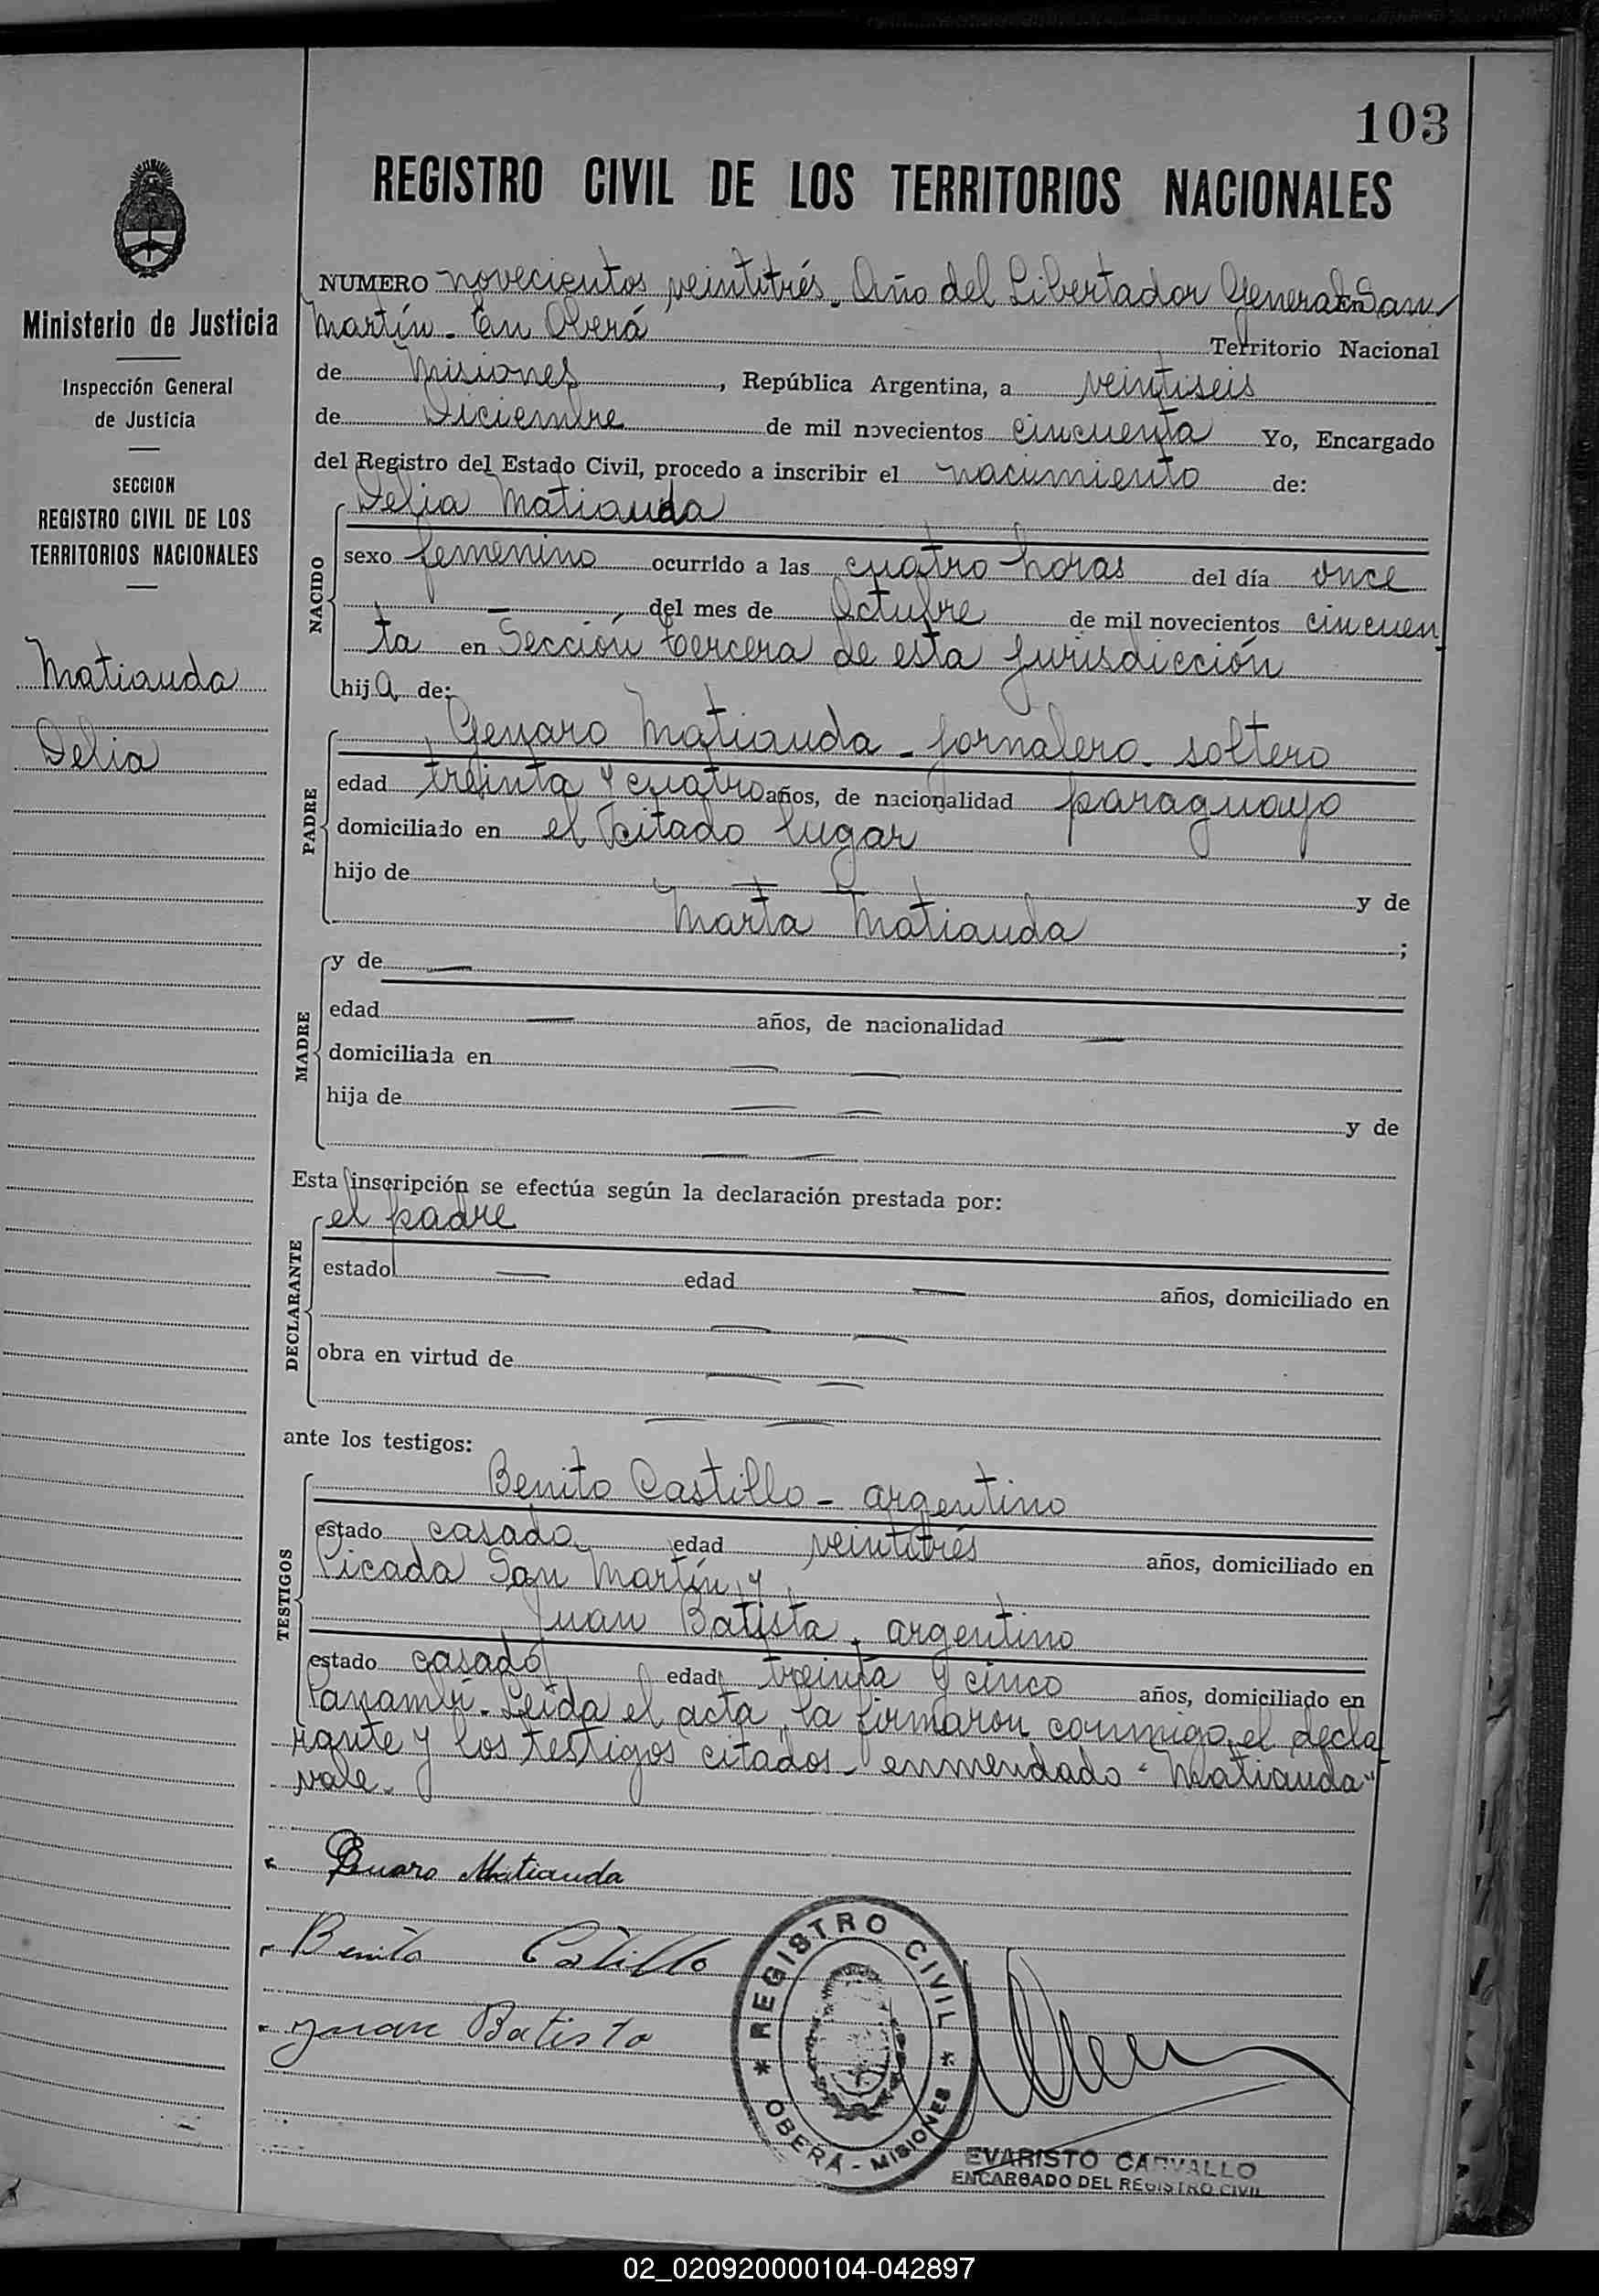 103
REGISTRO CIVIL DE LOS TERRITORIOS NACIONALES
Ministerio de Justicia
Inspección General
de Justicia
SECCION
REGISTRO CIVIL DE LOS
TERRITORIOS NACIONALES
Matiauda
Delia
NUMERO novecientos veintitrés. Año del Libertador General San
Martín. En Oberá Territorio Nacional
de Misiones, República Argentina, a veintiseis
de Diciembre de mil novecientos cincuenta Yo, Encargado
del Registro del Estado Civil, procedo a inscribir el nacimiento de:
NACIDO
Delia Matiauda
sexo femenino ocurrido a las cuatro horas del día once
— del mes de Octubre de mil novecientos cincuen
ta en Sección tercera de esta jurisdicción
hija de:
PADRE
Genaro Matiauda - jornalero. soltero
edad treinta y cuatro años, de nacionalidad paraguayo
domiciliado en el citado lugar
hijo de — — y de
Marta Matiauda ;
MADRE
y de —
edad — años, de nacionalidad —
domiciliada en — —
hija de — — y de
— —
Esta inscripción se efectúa según la declaración prestada por:
DECLARANTE
el padre
estado — edad — años, domiciliado en
— —
obra en virtud de — —
— —
ante los testigos:
TESTIGOS
Benito Castillo - argentino
estado casado edad veintitrés años, domiciliado en
Picada San Martín y
Juan Batista, argentino
estado casado edad treinta y cinco años, domiciliado en
Panambí. Leída el acta, la firmaron conmigo, el decla
rante y los testigos citados - enmendado "Matiauda"
vale.
Genaro Matiauda
Benito Catillo
Juan Batista
* REGISTRO CIVIL *
OBERÁ - MISIONES
EVARISTO CARVALLO
ENCARGADO DEL REGISTRO CIVIL
02_020920000104-042897